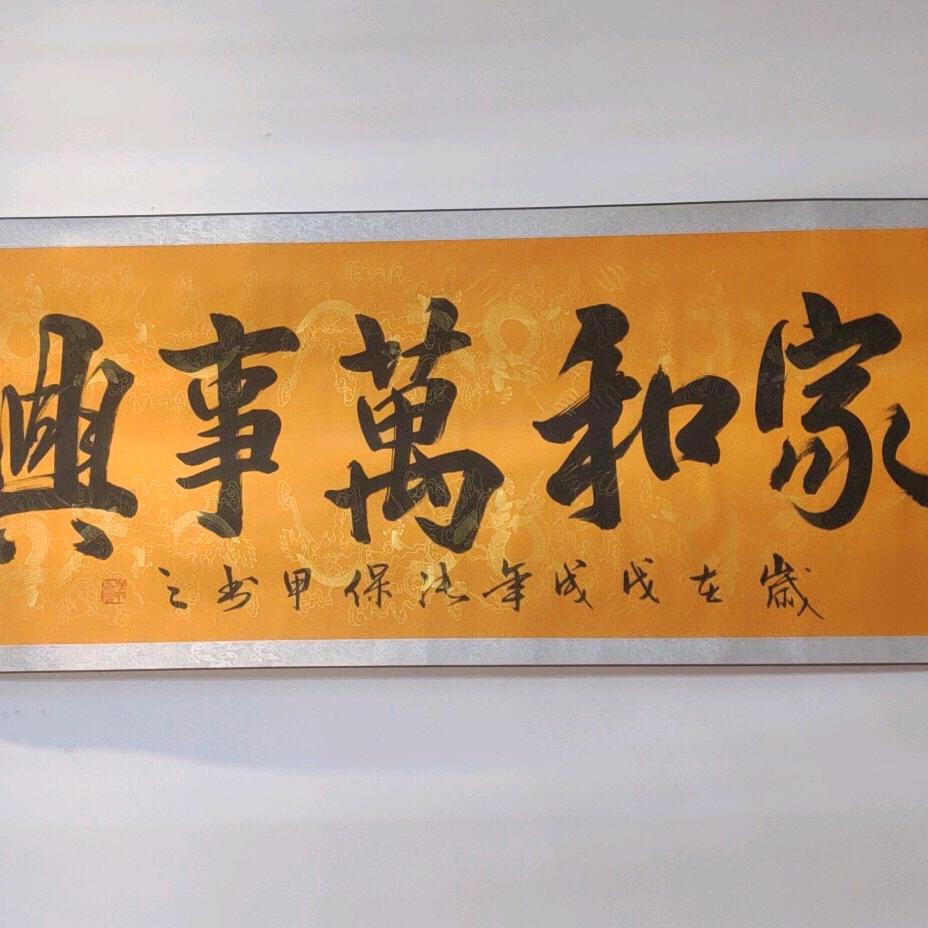 家和萬事興
歲在戊戌年洪保甲书之